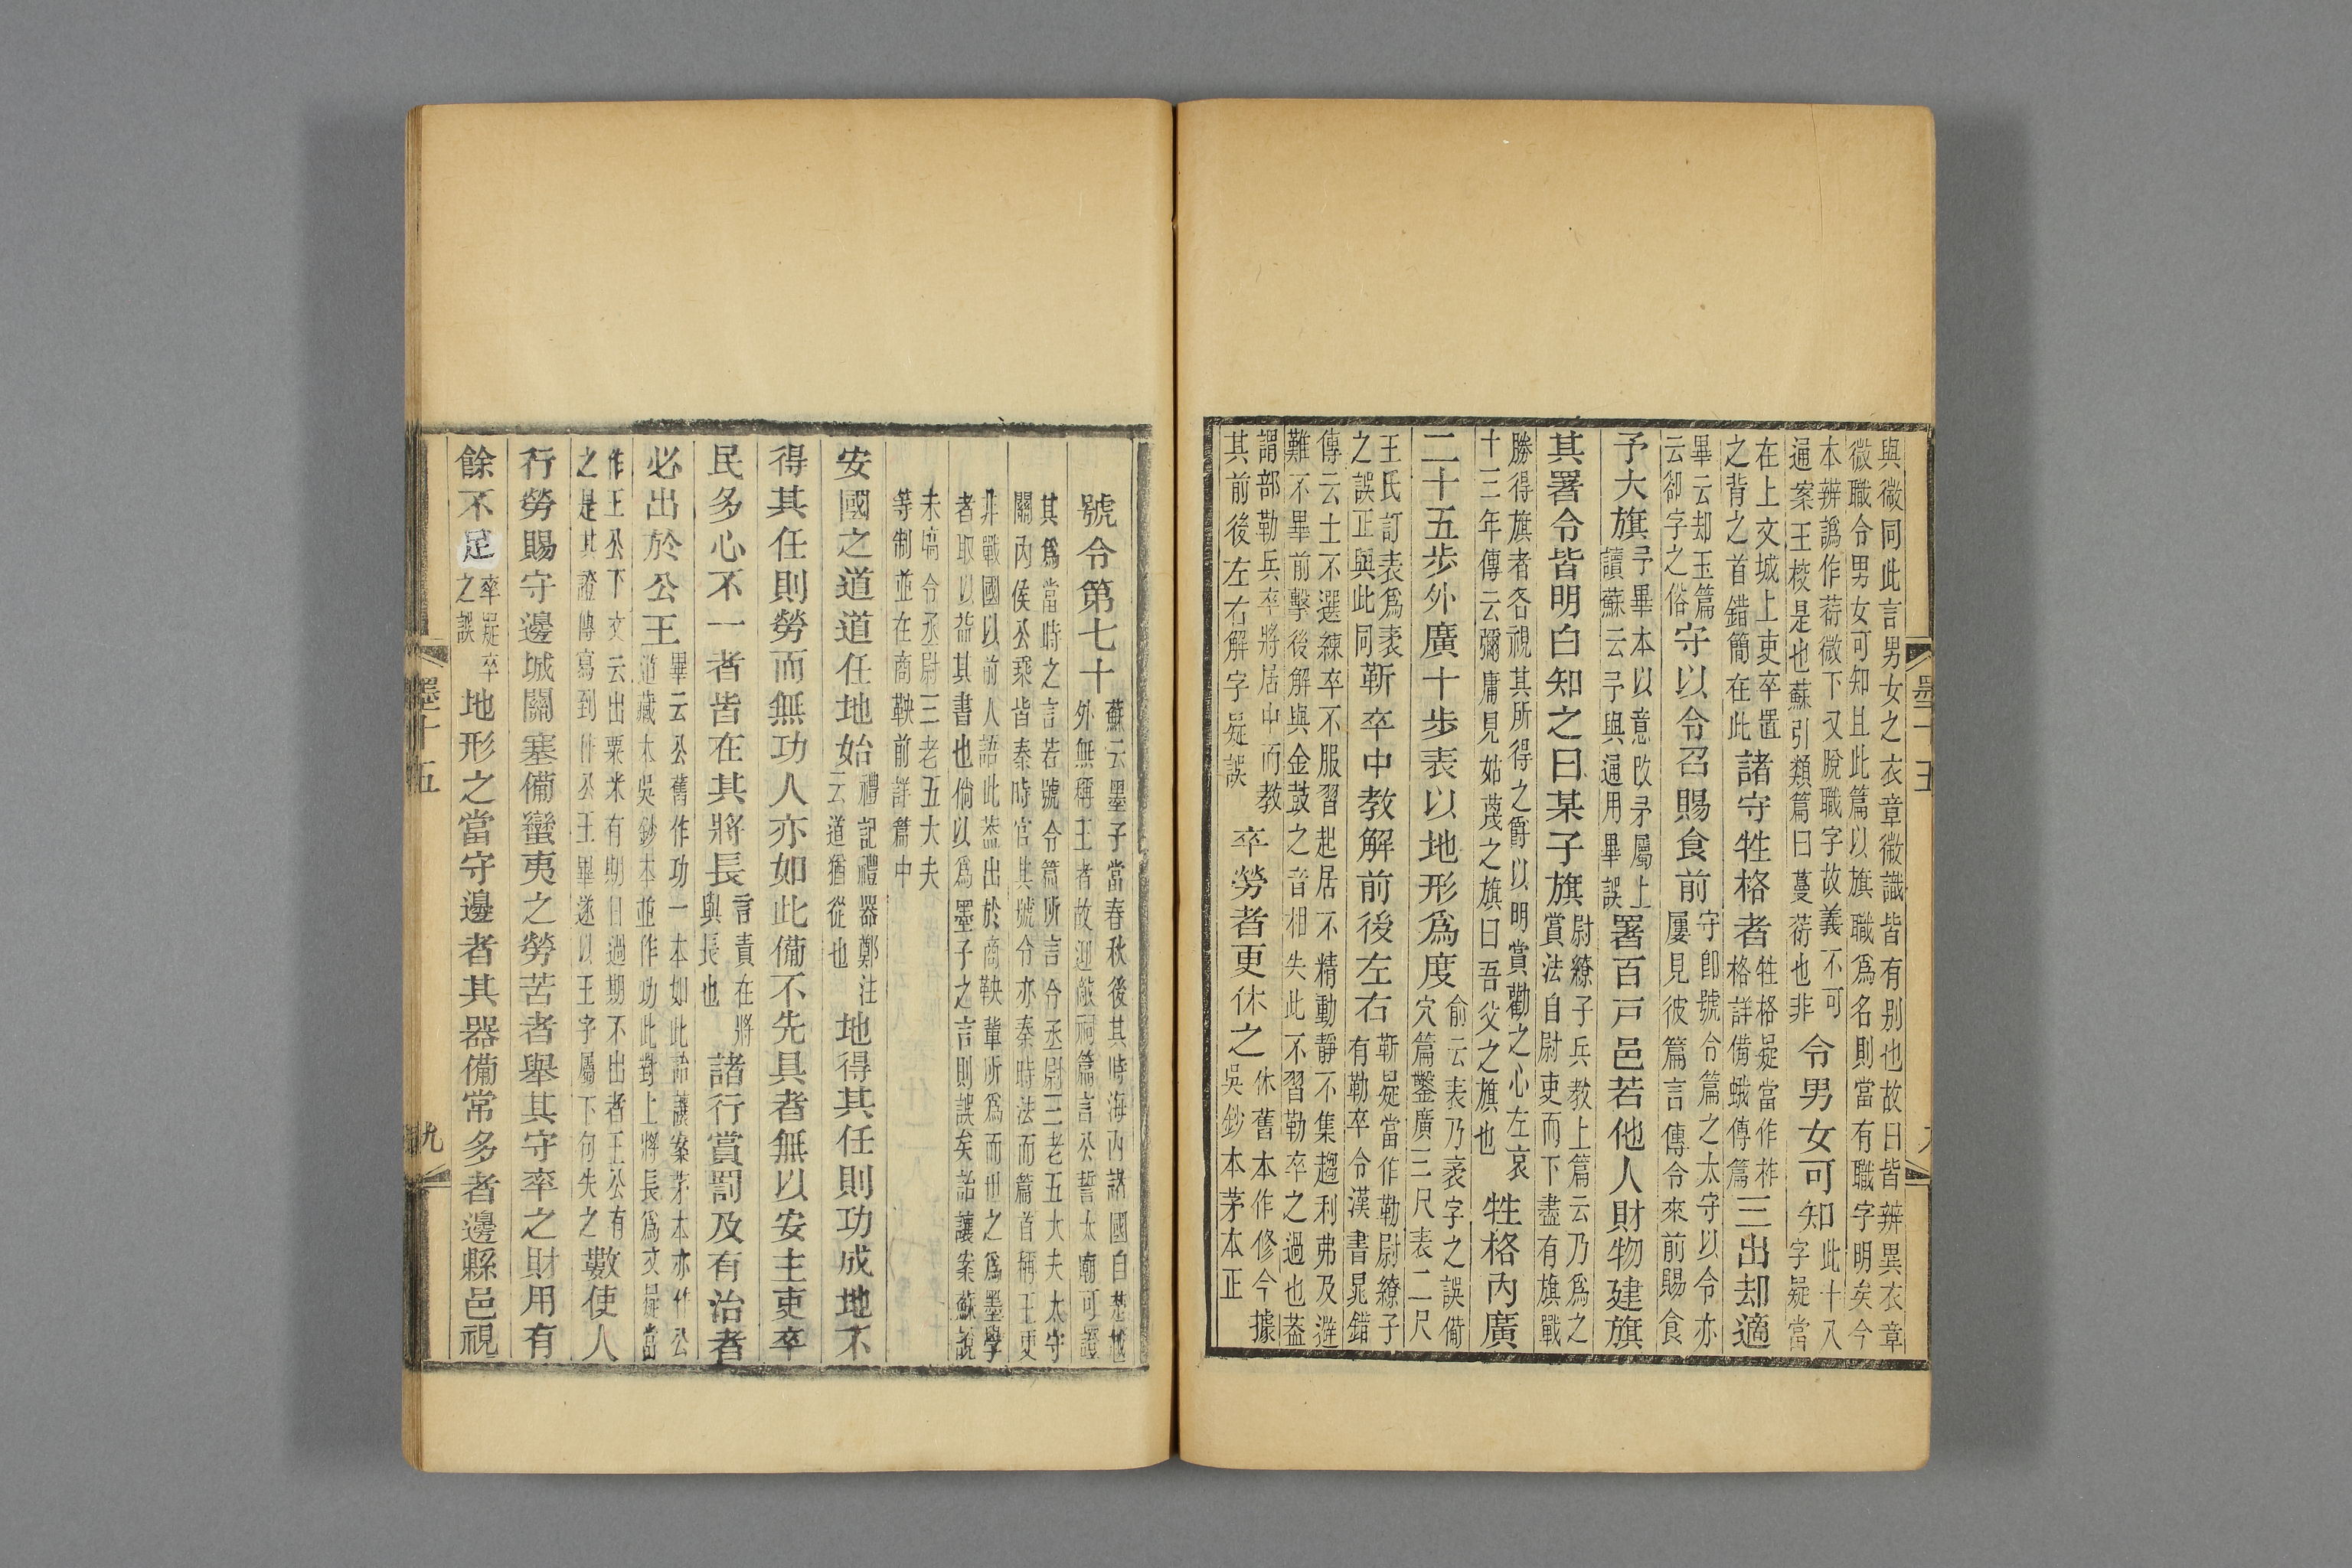 與微同此言男女之衣章微識皆有别也故曰皆辨異衣章
微職令男女可知且此篇以旗職爲名則當有職字明矣今
本辨譌作荶微下又脫職字故義不可
通案王校是也蘇引類篇曰蔓荶也非
令男女可知
此十八
字疑當
在上文城上吏卒置
之背之首錯簡在此
諸守牲格者
牲格疑當作柞
格詳備蛾傅篇
三出却適
畢云却玉篇
云卻字之俗
守以令召賜食前
守卽號令篇之太守以令亦
屢見彼篇言傳令來前賜食
予大旗
予畢本以意改矛屬上
讀蘇云予與通用畢誤
署百戸邑若他人財物建旗
其署令皆明白知之曰某子旗
尉繚子兵教上篇云乃爲之
賞法自尉吏而下盡有旗戰
勝得旗者各視其所得之爵以明賞勸之心左哀
十三年傳云彌庸見姑蔑之旗曰吾父之旗也
牲格內廣
二十五步外廣十步表以地形爲度
俞云表乃袤字之誤備
穴篇鑿廣三尺表二尺
王氏訂表爲袤
之誤正與此同
靳卒中教解前後左右
靳疑當作勒尉繚子
有勒卒令漢書晁錯
傳云士不選練卒不服習起居不精動靜不集趨利弗及避
難不畢前擊後解與金鼓之音相失此不習勒卒之過也葢
謂部勒兵卒將居中而教
其前後左右解字疑誤
卒勞者更休之
休舊本作修今據
吳鈔本茅本正
號令第七十
蘇云墨子當春秋後其時海內諸國自楚越
外無稱王者故迎敵祠篇言公誓太廟可證
其爲當時之言若號令篇所言令丞尉三老五大夫太守
關內侯公乘皆秦時官其號令亦秦時法而篇首稱王更
非戰國以前人語此葢出於商鞅輩所爲而世之爲墨學
者取以益其書也倘以爲墨子之言則誤矣詒讓案蘇說
未塙令丞尉三老五大夫
等制並在商鞅前詳篇中
安國之道道任地始
禮記禮器鄭注
云道猶從也
地得其任則功成地不
得其任則勞而無功人亦如此備不先具者無以安主吏卒
民多心不一者皆在其將長
言責在將
與長也
諸行賞罰及有治者
必出於公王
畢云公舊作功一本如此詒讓案茅本亦作公
道藏本吳鈔本並作功此對上將長爲文疑當
作王公下文云出粟米有期日過期不出者王公有
之是其證傳寫到作公王畢遂以王字屬下句失之
數使人
行勞賜守邊城關塞備蠻夷之勞苦者舉其守率之財用有
餘不足
率疑卒
之誤
地形之當守邊者其器備常多者邊縣邑視
墨十五
九